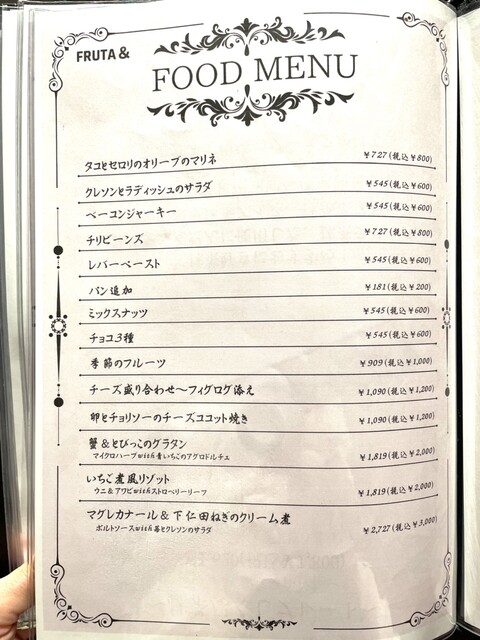 FRUTA &
FOOD MENU
タコとセロリのオリーブのマリネ ¥727(税込¥800)
クレソンとラディッシュのサラダ ¥545(税込¥600)
ベーコンジャーキー ¥545(税込¥600)
チリビーンズ ¥727(税込¥800)
レバーペースト ¥545(税込¥600)
パン追加 ¥181(税込¥200)
ミックスナッツ ¥545(税込¥600)
チョコ3種 ¥545(税込¥600)
季節のフルーツ ¥909(税込¥1,000)
チーズ盛り合わせ〜フィグログ添え ¥1,090(税込¥1,200)
卵とチョリソーのチーズココット焼き ¥1,090(税込¥1,200)
蟹&とびっこのグラタン ¥1,819(税込¥2,000)
マイクロハーブwith青いちごのアグロドルチェ
いちご煮風リゾット ¥1,819(税込¥2,000)
ウニ&アワビwithストロベリーリーフ
マグレカナール&下仁田ねぎのクリーム煮 ¥2,727(税込¥3,000)
ポルトソースwith苺とクレソンのサラダ